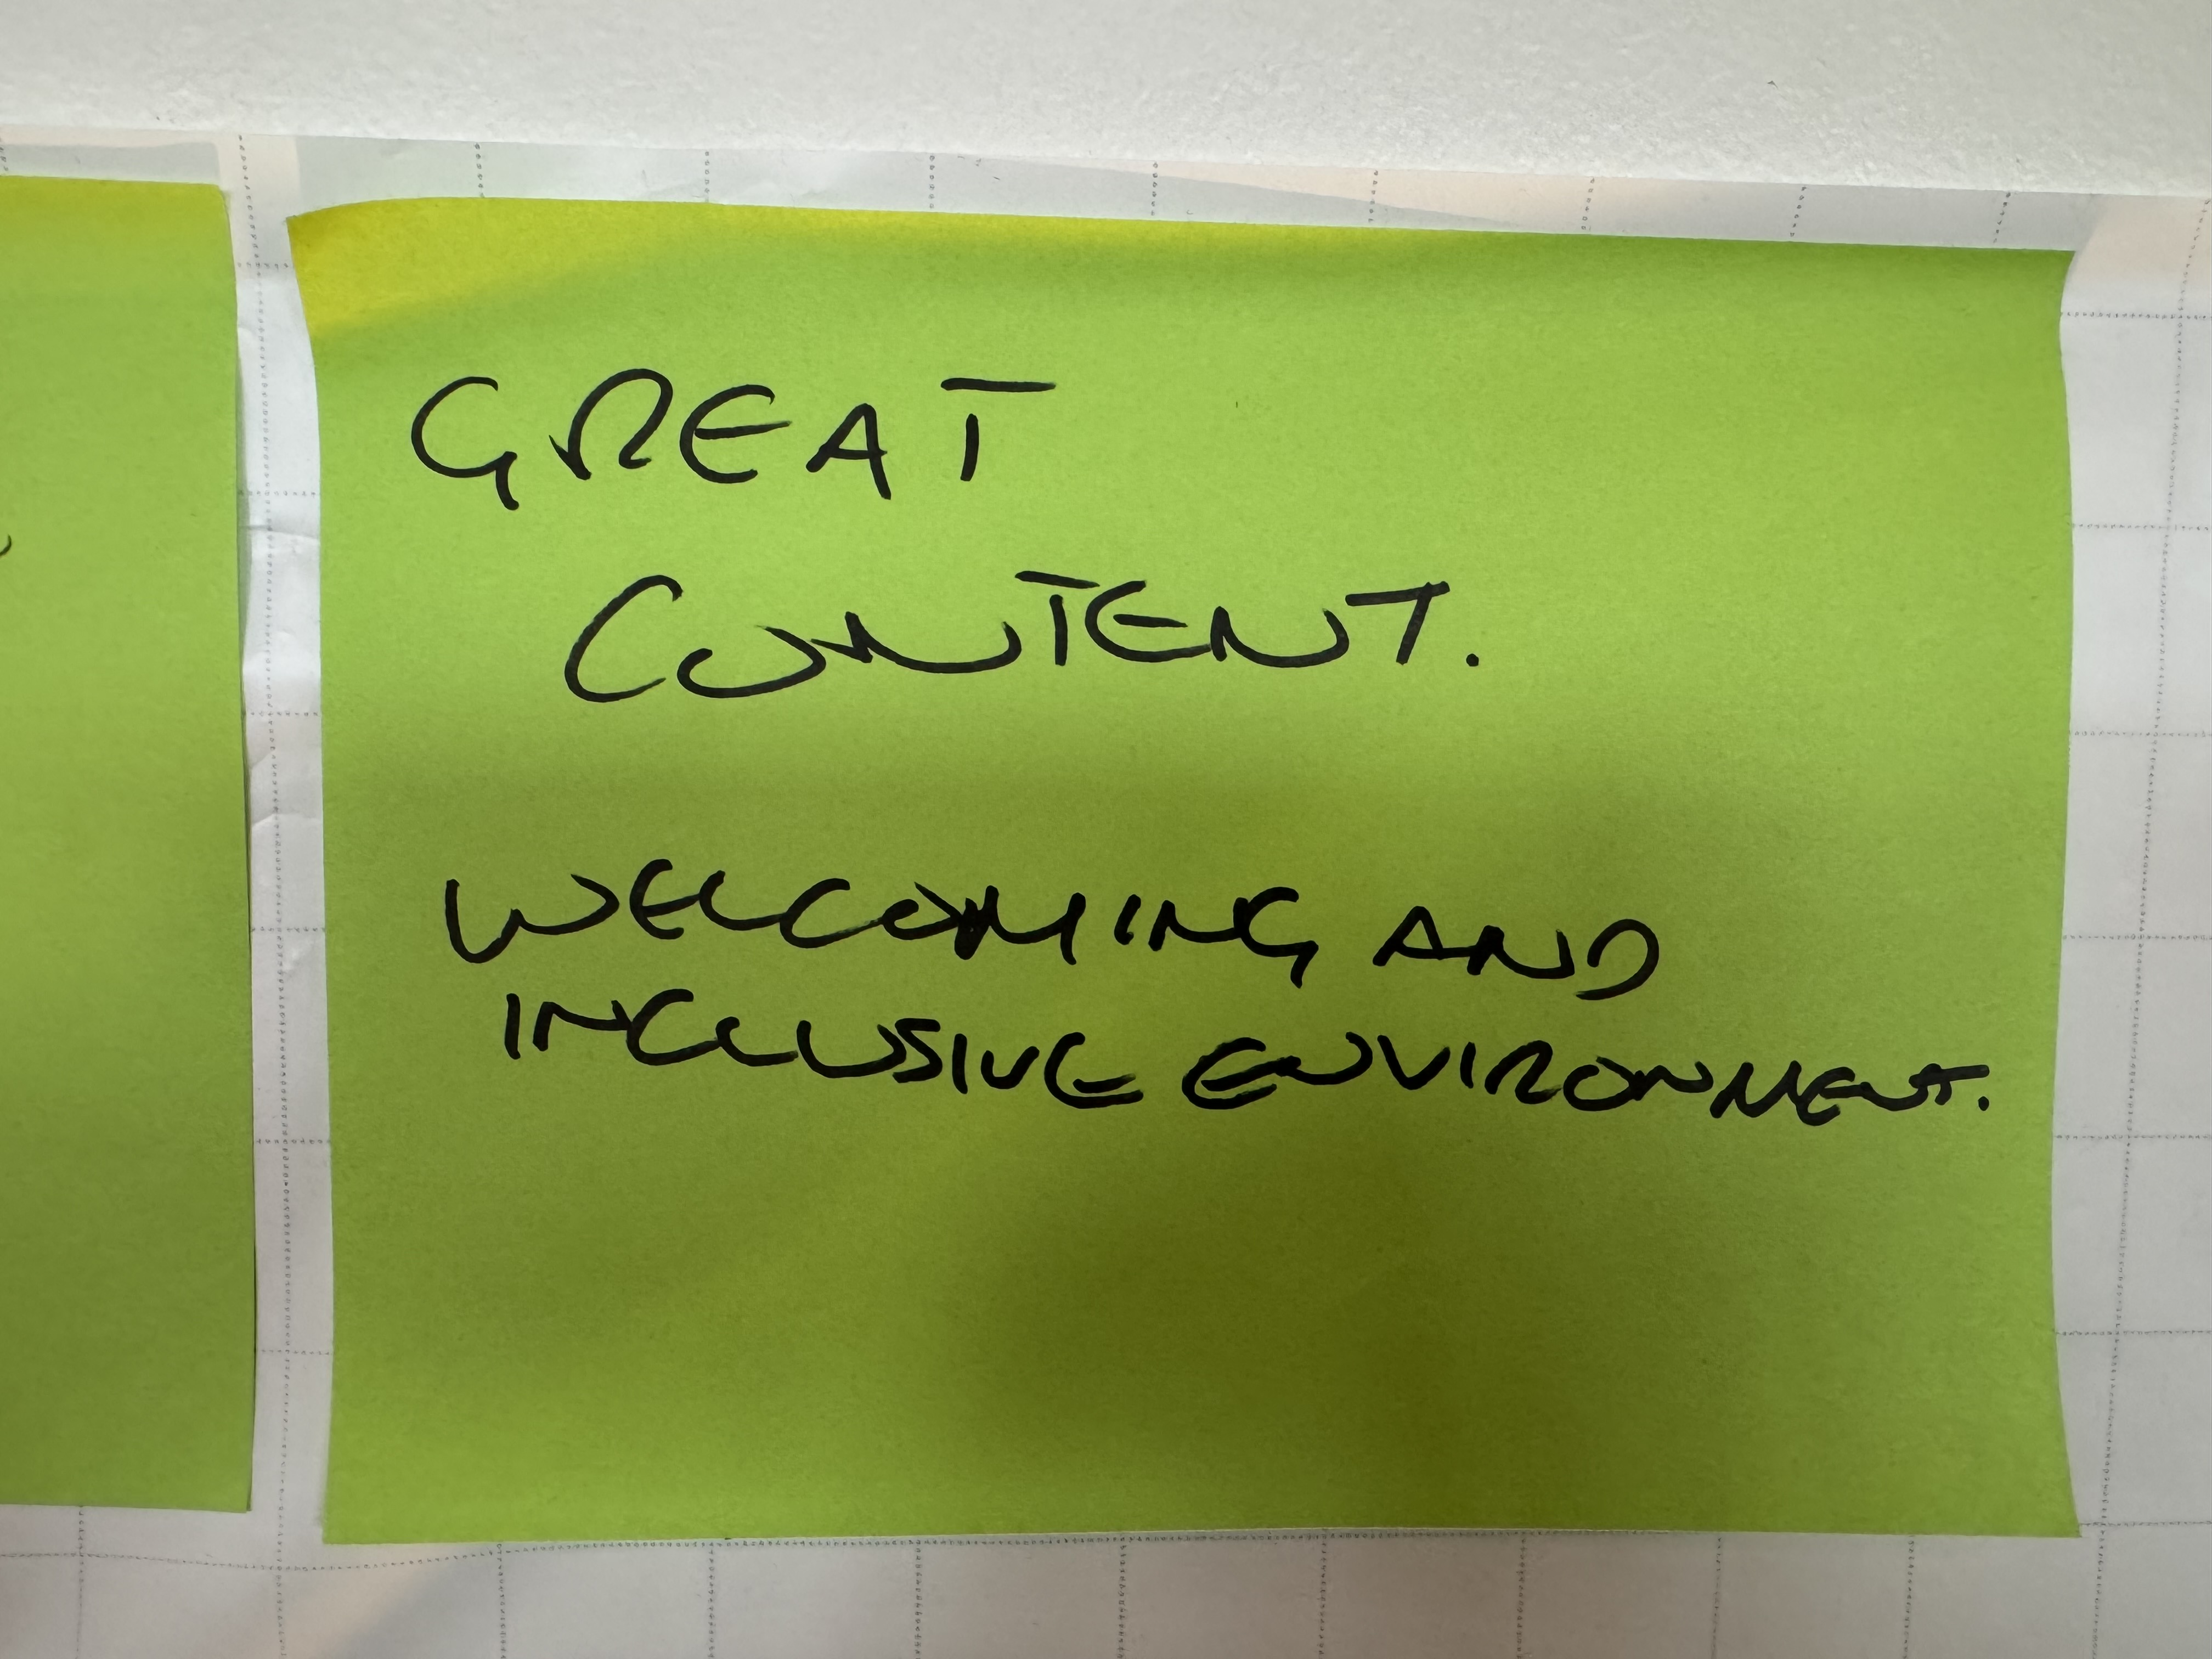 GREAT
CONTENT.
WELCOMING AND
INCLUSIVE ENVIRONMENT.